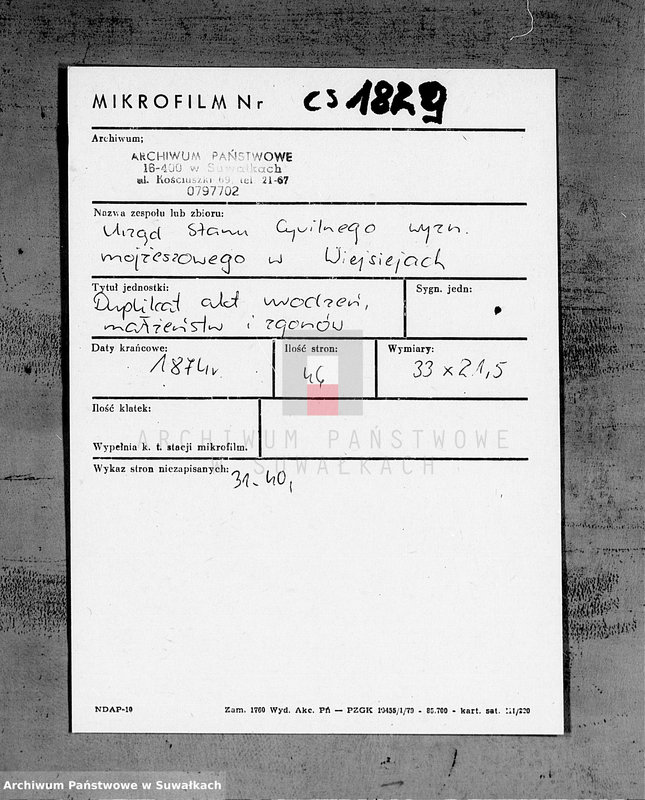 MIKROFILM Nr cs 1829
Archiwum;
ARCHIWUM PAŃSTWOWE
16-400 w Suwałkach
ul. Kościuszki 69, tel 21-67
0797702
Nazwa zespołu lub zbioru:
Urząd Stanu Cywilnego wyzn.
mojżeszowego w Wiejsiejach
Tytuł jednostki:
Sygn. jedn:
Duplikat akt urodzeń,
małżeństw i zgonów
Daty krańcowe:
1874r.
Ilość stron:
Wymiary:
33 x 21,5
Ilość klatek:
Wypełnia k. t. stacji mikrofilm.
ARCHIWUM PAŃSTWOWE
SUWAŁKACH
Wykaz stron niezapisanych:
31-40,
NDAP-10
Zam. 1760 Wyd. Akc. Pń — PZGK - kart. sat.
Archiwum Państwowe w Suwałkach